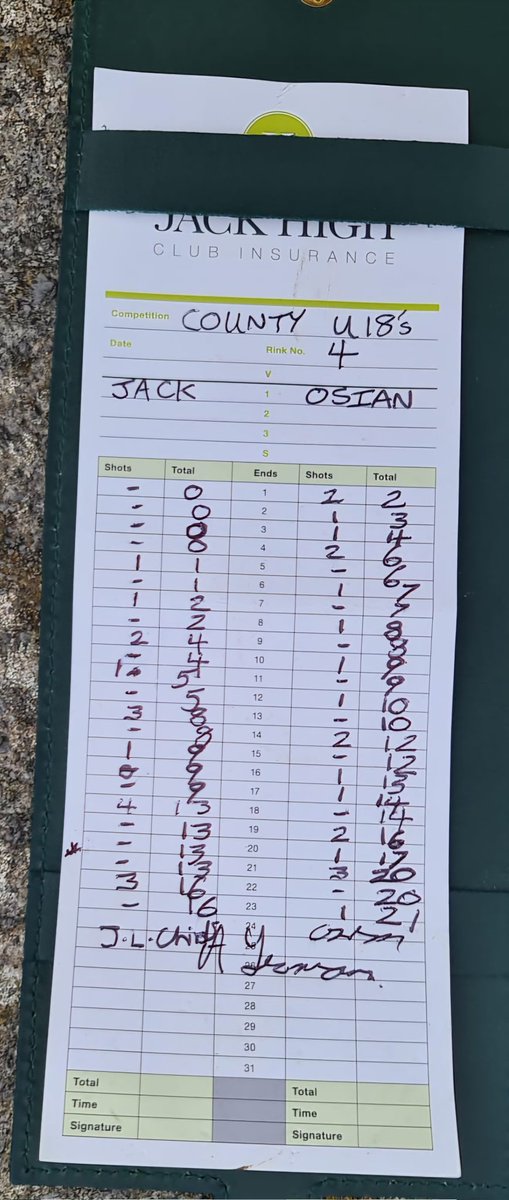 JACK HIGH
CLUB INSURANCE
Competition COUNTY U18's
Date Rink No. 4
V
JACK 1 OSIAN
2
3
S
Shots Total Ends Shots Total
- 0 1 2 2
- 0 2 1 3
- 0 3 1 4
- 0 4 2 6
1 1 5 - 6
- 1 6 1 7
1 2 7 - 7
- 2 8 1 8
2 4 9 - 8
- 4 10 1 9
1 5 11 - 9
- 5 12 1 10
3 8 13 - 10
- 8 14 2 12
1 9 15 - 12
- 9 16 1 13
- 9 17 1 14
4 13 18 - 14
- 13 19 2 16
- 13 20 1 17
- 13 21 3 20
3 16 22 - 20
- 16 23 1 21
24
J.L.
27
28
29
30
31
Total Total
Time Time
Signature Signature